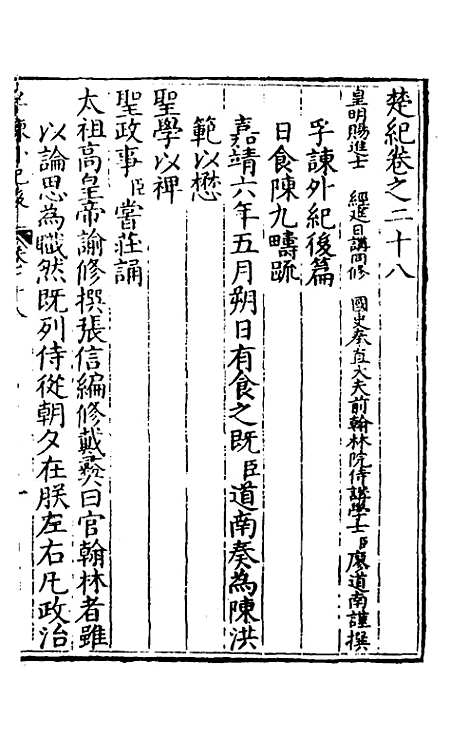 楚紀卷之二十八
皇明賜進士 經筵日講同修 國史奉直大夫前翰林院侍講學士臣廖道南謹撰
孚諫外紀後篇
日食陳九疇䟽
嘉靖六年五月朔日有食之既臣道南奏為陳洪
範以懋
聖學以裨
聖政事臣嘗莊誦
太祖高皇帝諭修撰張信編修戴彝曰官翰林者雖
以論思為職然既列侍從朝夕在朕左右凡政治